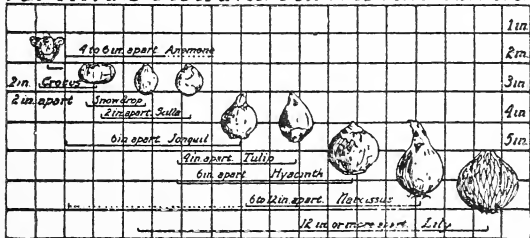 1 in.
4 to 6 in. apart Anemone
2 in.
2 in. Crocus
3 in.
2 in. apart Snowdrop
2 in. apart Scilla
4 in.
6 in. apart Jonquil
5 in.
4 in. apart Tulip
6 in. apart Hyacinth
6 to 12 in. apart Narcissus
12 in. or more apart Lily